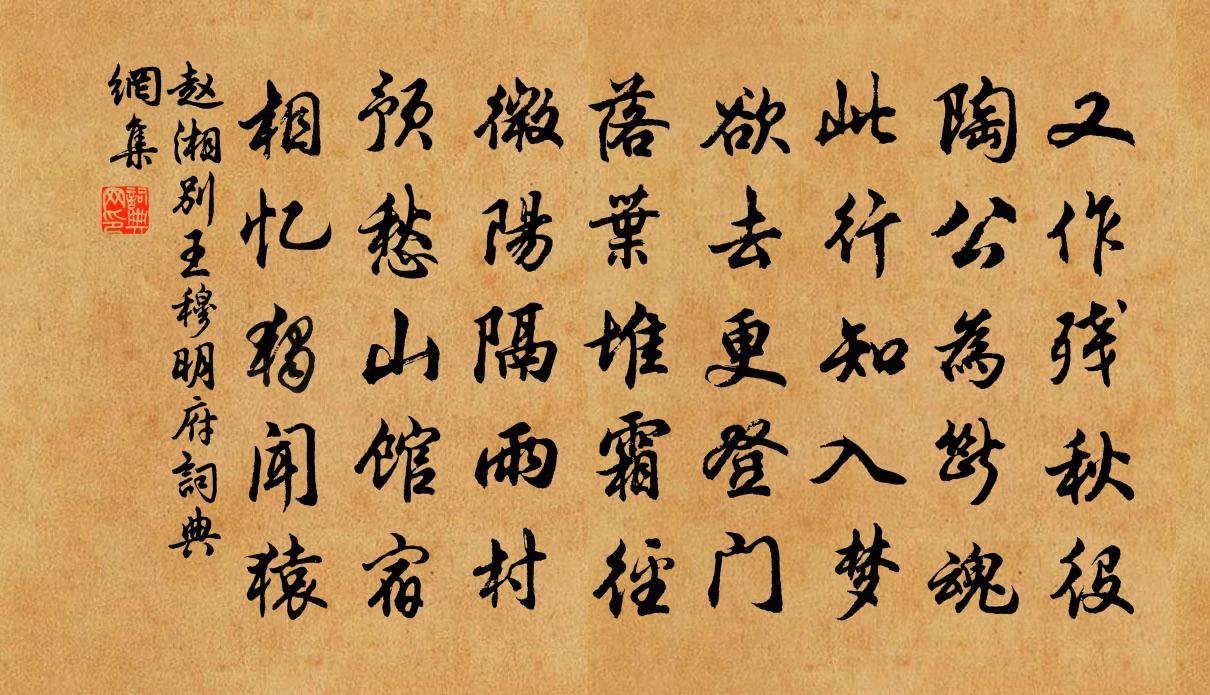 又作残秋役
陶公為断魂
此行知入梦
欲去更登门
落葉堆霜徑
微陽隔雨村
预愁山馆宿
相忆独闻猿
赵湘别王穆明府詞典
網集
詞典
网印